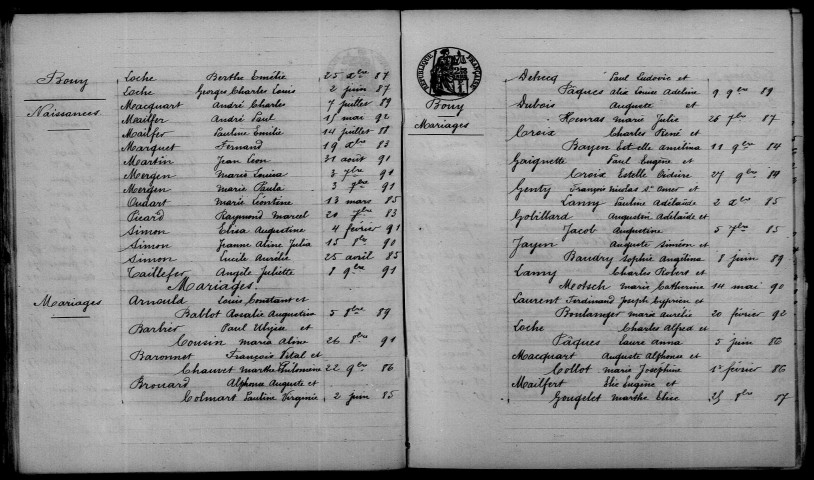 Bouy
Naissances
Loche Berthe Emélie 25 xbre 87
Loche Georges Charles Louis 2 juin 87
Macquart André Charles 7 juillet 89
Mailfer André Paul 15 mai 92
Mailfer Pauline Emilie 14 juillet 88
Marquet Fernand 19 xbre 83
Martin Jean Léon 31 août 91
Mergen Marie Louisa 3 7bre 91
Mergen Marie Paula 3 7bre 91
Oudart Marie Léontine 13 mars 85
Picard Raymond Marcel 21 7bre 83
Simon Elisa Augustine 4 février 91
Simon Jeanne Aline Julia 15 8bre 90
Simon Lucile Aurélie 25 avril 85
Taillefer Angèle Juliette 8 9bre 91
Mariages.
Mariages
Arnould Louis Constant et
Bablot Rosalie Augustine 5 8bre 89
Barbier Paul Ulysse et
Cousin Maria Aline 26 8bre 91
Baronnet François Vital et
Chauvet Marthe Philomène 22 9bre 86
Brouard Alphonse Auguste et
Colmart Pauline Virginie 2 juin 85
RÉPUBLIQUE FRANÇAISE
Bouy
Mariages
Dehecq Paul Ludovic et
Pâques Alix Louise Adeline 9 9bre 89
Dubois Auguste et
Henras Marie Julie 26 7bre 87
Croix Charles René et
Bayen Estelle Amélina 11 9bre 84
Goignette Paul Eugène et
Croix Estelle 27 9bre 84
Genty François Nicolas St Omer et
Lamy Pauline Adélaïde 2 xbre 85
Gobillard Augustin Adélaïde et
Jacob Augustine 5 7bre 85
Jayen Auguste Siméon et
Baudry Sophie Angélina 8 juin 89
Lamy Charles Robert et
Motsch Marie Catherine 14 mai 90
Laurent Ferdinand Joseph Cyprien et
Boulanger Marie Aurélie 20 février 92
Loche Charles Alfred et
Pâques Laure Anna 5 juin 86
Macquart Auguste Alphonse et
Collot Marie Joséphine 1r février 86
Mailfert Elie Eugène et
Gougelet Marthe Elise 25 8bre 87